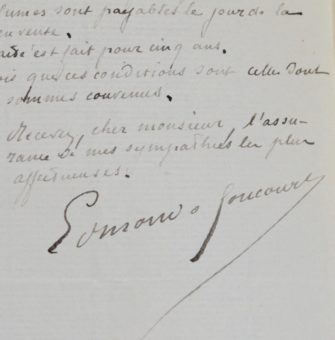 lumes sont payables le jour de la
en vente.
aité c'est fait pour cinq ans.
ois que ces conditions sont celles dont
sommes convenus.
Recevez, cher monsieur, l'assu-
rance de mes sympathies les plus
affectueuses.
Edmond de Goncourt